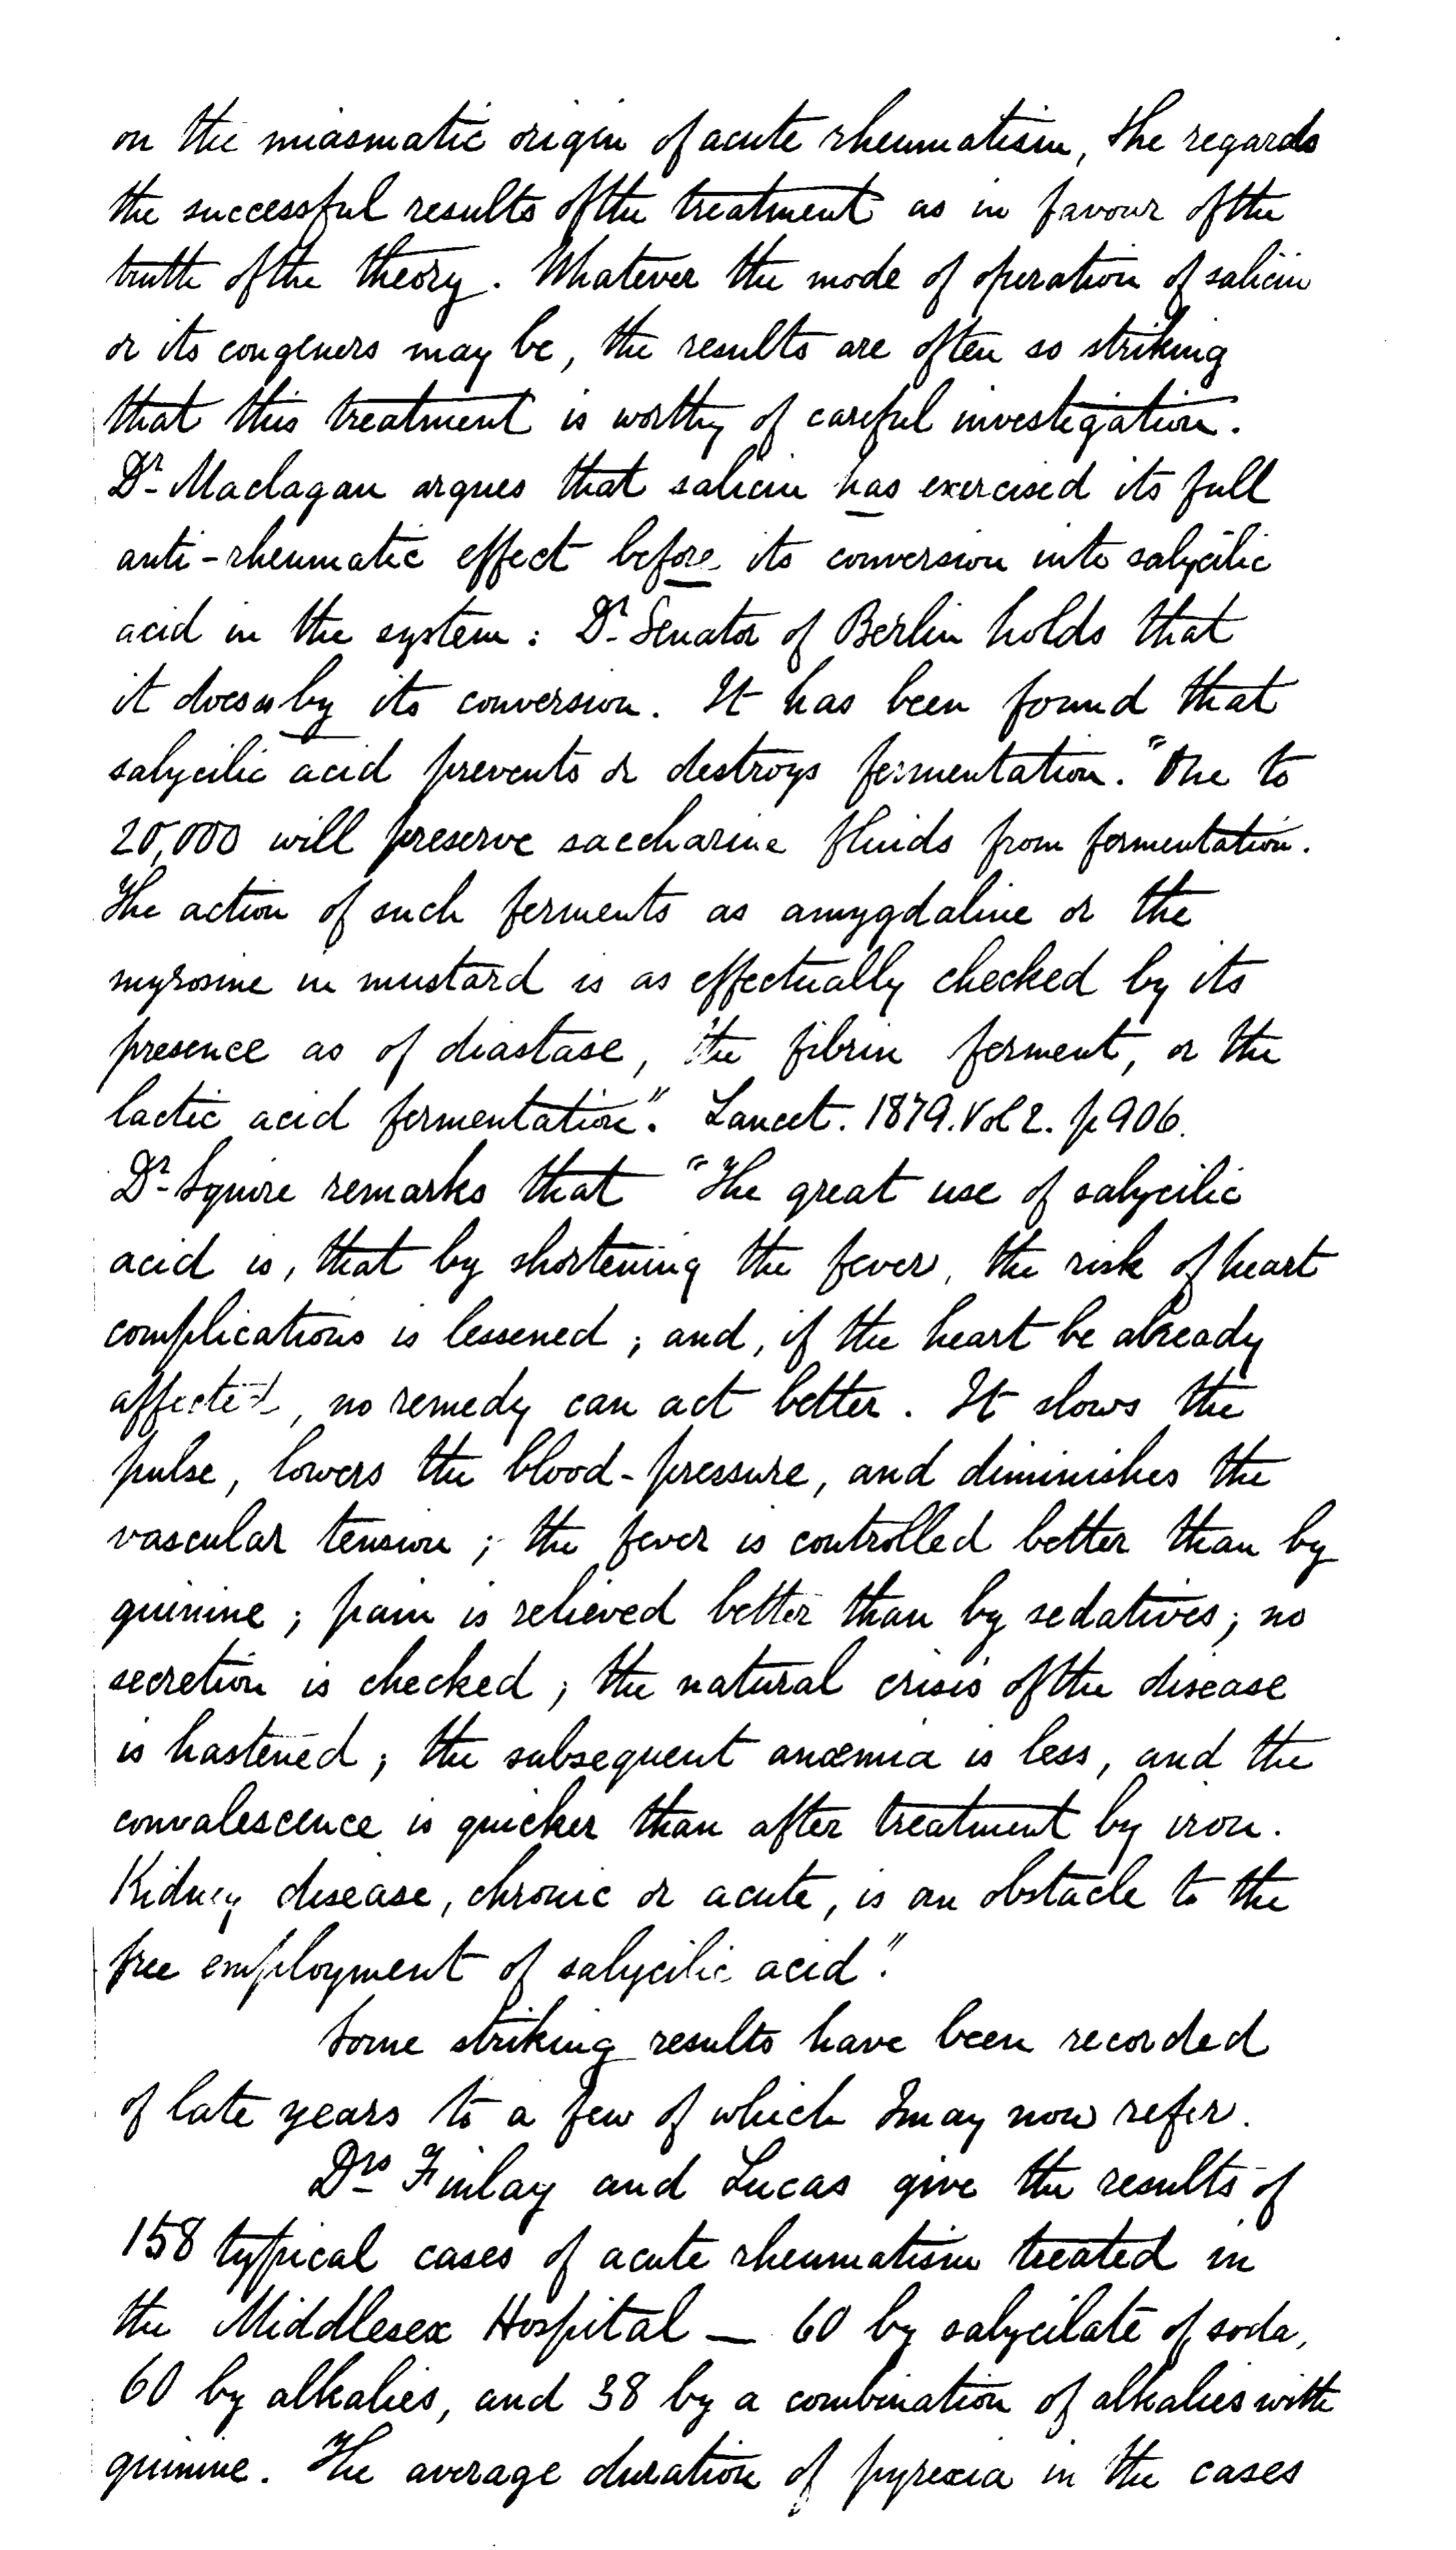 on the miasmatic origin of acute rheumatism, & he regards
the successful results of the treatment as in favour of the
truth of the theory. Whatever the mode of operation of salicin
or its congeners may be, the results are often so striking
that this treatment is worthy of careful investigation.
Dr. Maclagan argues that salicin has exercised its full
anti-rheumatic effect before its conversion into salycilic
acid in the system: Dr. Senator of Berlin holds that
it does so by its conversion. It has been found that
salycilic acid prevents or destroys fermentation. "One to
20,000 will preserve saccharine fluids from fermentation.
The action of such ferments as amygdaline or the
myrosine in mustard is as effectually checked by its
presence as of diastase, the fibrin ferment, or the
lactic acid fermentation". Lancet. 1879. Vol 2. p 906.
Dr. Squire remarks that "The great use of salycilic
acid is, that by shortening the fever, the risk of heart
complications is lessened; and, if the heart be already
affected, no remedy can act better. It slows the
pulse, lowers the blood-pressure, and diminishes the
vascular tension; the fever is controlled better than by
quinine; pain is relieved better than by sedatives; no
secretion is checked; the natural crisis of the disease
is hastened; the subsequent anæmia is less, and the
convalescence is quicker than after treatment by iron.
Kidney disease, chronic or acute, is an obstacle to the
free employment of salycilic acid".
Some striking results have been recorded
of late years to a few of which I may now refer.
Drs Finlay and Lucas give the results of
158 typical cases of acute rheumatism treated in
the Middlesex Hospital — 60 by salycilate of soda,
60 by alkalies, and 38 by a combination of alkalies with
quinine. The average duration of pyrexia in the cases